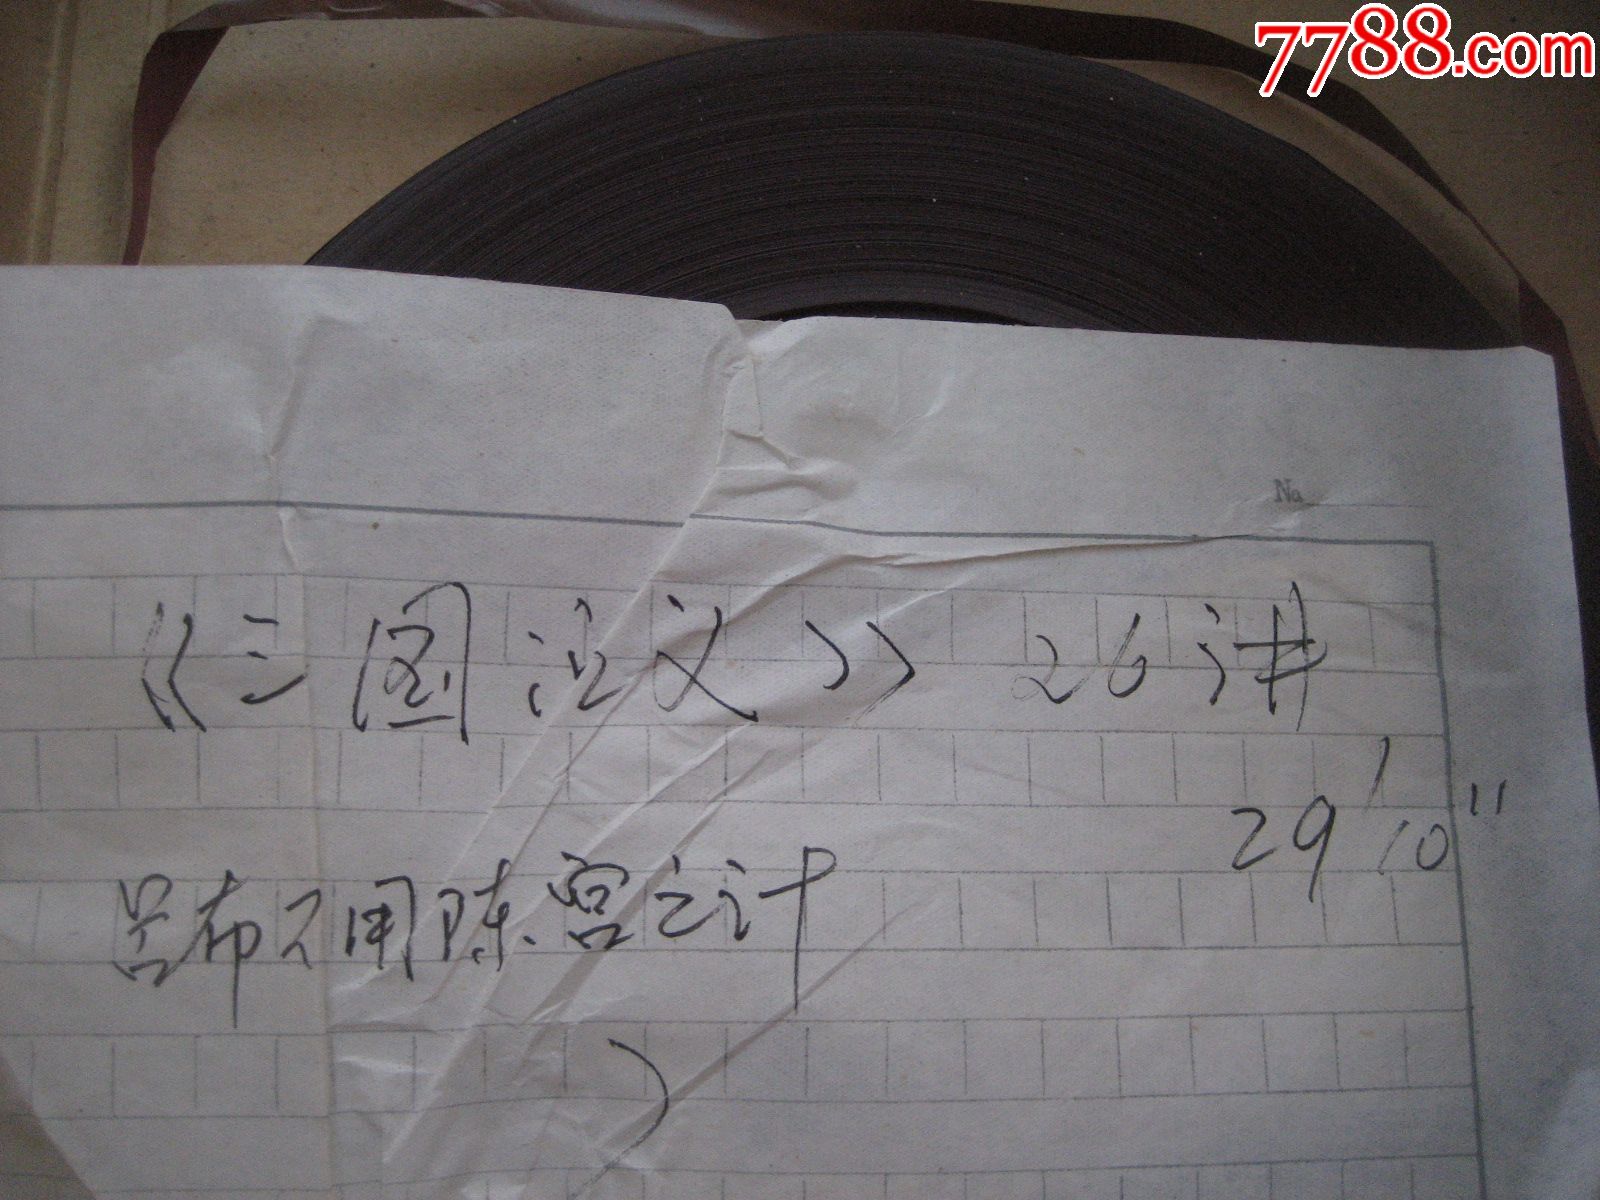 7788.com
No
《三国演义》 26讲
29′10″
吕布不用陈宫之计